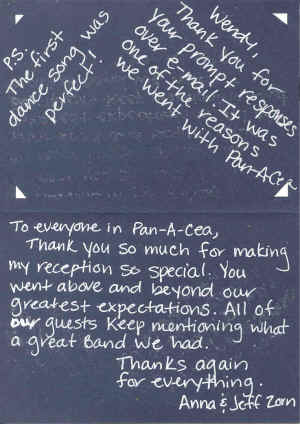 P.S.
The first
dance song was
perfect!
Wendy,
Thank you for
your prompt responses
over e-mail. It was
one of the reasons
we went with Pan-A-Cea
To everyone in Pan-A-Cea,
Thank you so much for making
my reception so special. You
went above and beyond our
greatest expectations. All of
our guests keep mentioning what
a great Band we had.
Thanks again
for everything.
Anna & Jeff Zorn